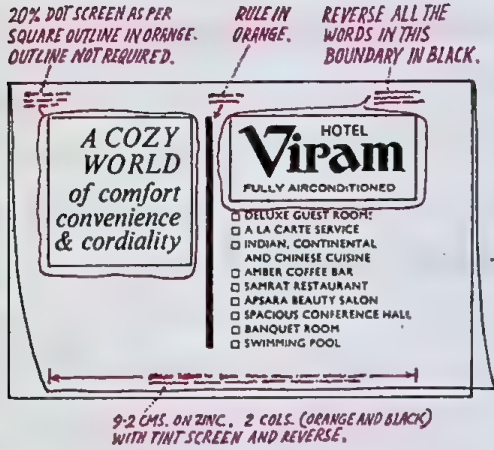 20% DOT SCREEN AS PER
SQUARE OUTLINE IN ORANGE.
OUTLINE NOT REQUIRED.
RULE IN
ORANGE.
REVERSE ALL THE
WORDS IN THIS
BOUNDARY IN BLACK.
A COZY
WORLD
of comfort
convenience
& cordiality
HOTEL
Viram
FULLY AIRCONDITIONED
□ DELUXE GUEST ROOMS
□ A LA CARTE SERVICE
□ INDIAN, CONTINENTAL
AND CHINESE CUISINE
□ AMBER COFFEE BAR
□ SAMRAT RESTAURANT
□ APSARA BEAUTY SALON
□ SPACIOUS CONFERENCE HALL
□ BANQUET ROOM
□ SWIMMING POOL
9·2 CMS. ON ZINC. 2 COLS. (ORANGE AND BLACK)
WITH TINT SCREEN AND REVERSE.